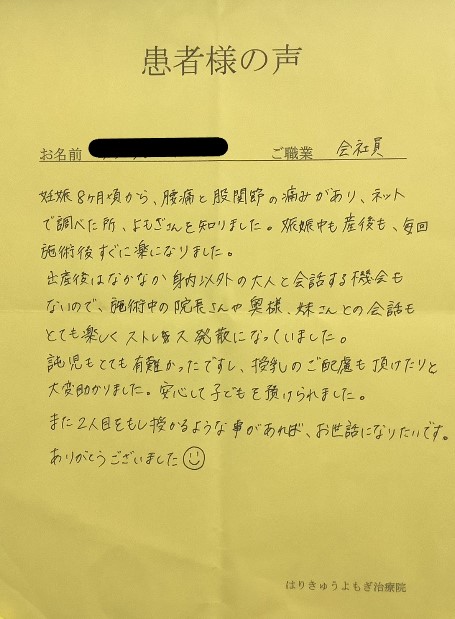 患者様の声
お名前 ご職業 会社員
妊娠8ヶ月頃から、腰痛と股関節の痛みがあり、ネット
で調べた所、よもぎさんを知りました。妊娠中も産後も、毎回
施術後すぐに楽になりました。
出産後はなかなか身内以外の大人と会話する機会も
ないので、施術中の院長さんや奥様、妹さんとの会話も
とても楽しくストレス発散になっていました。
託児もとても有難かったですし、授乳のご配慮も頂けたりと
大変助かりました。安心して子どもを預けられました。
また2人目をもし授かるような事があれば、お世話になりたいです。
ありがとうございました
はりきゅうよもぎ治療院